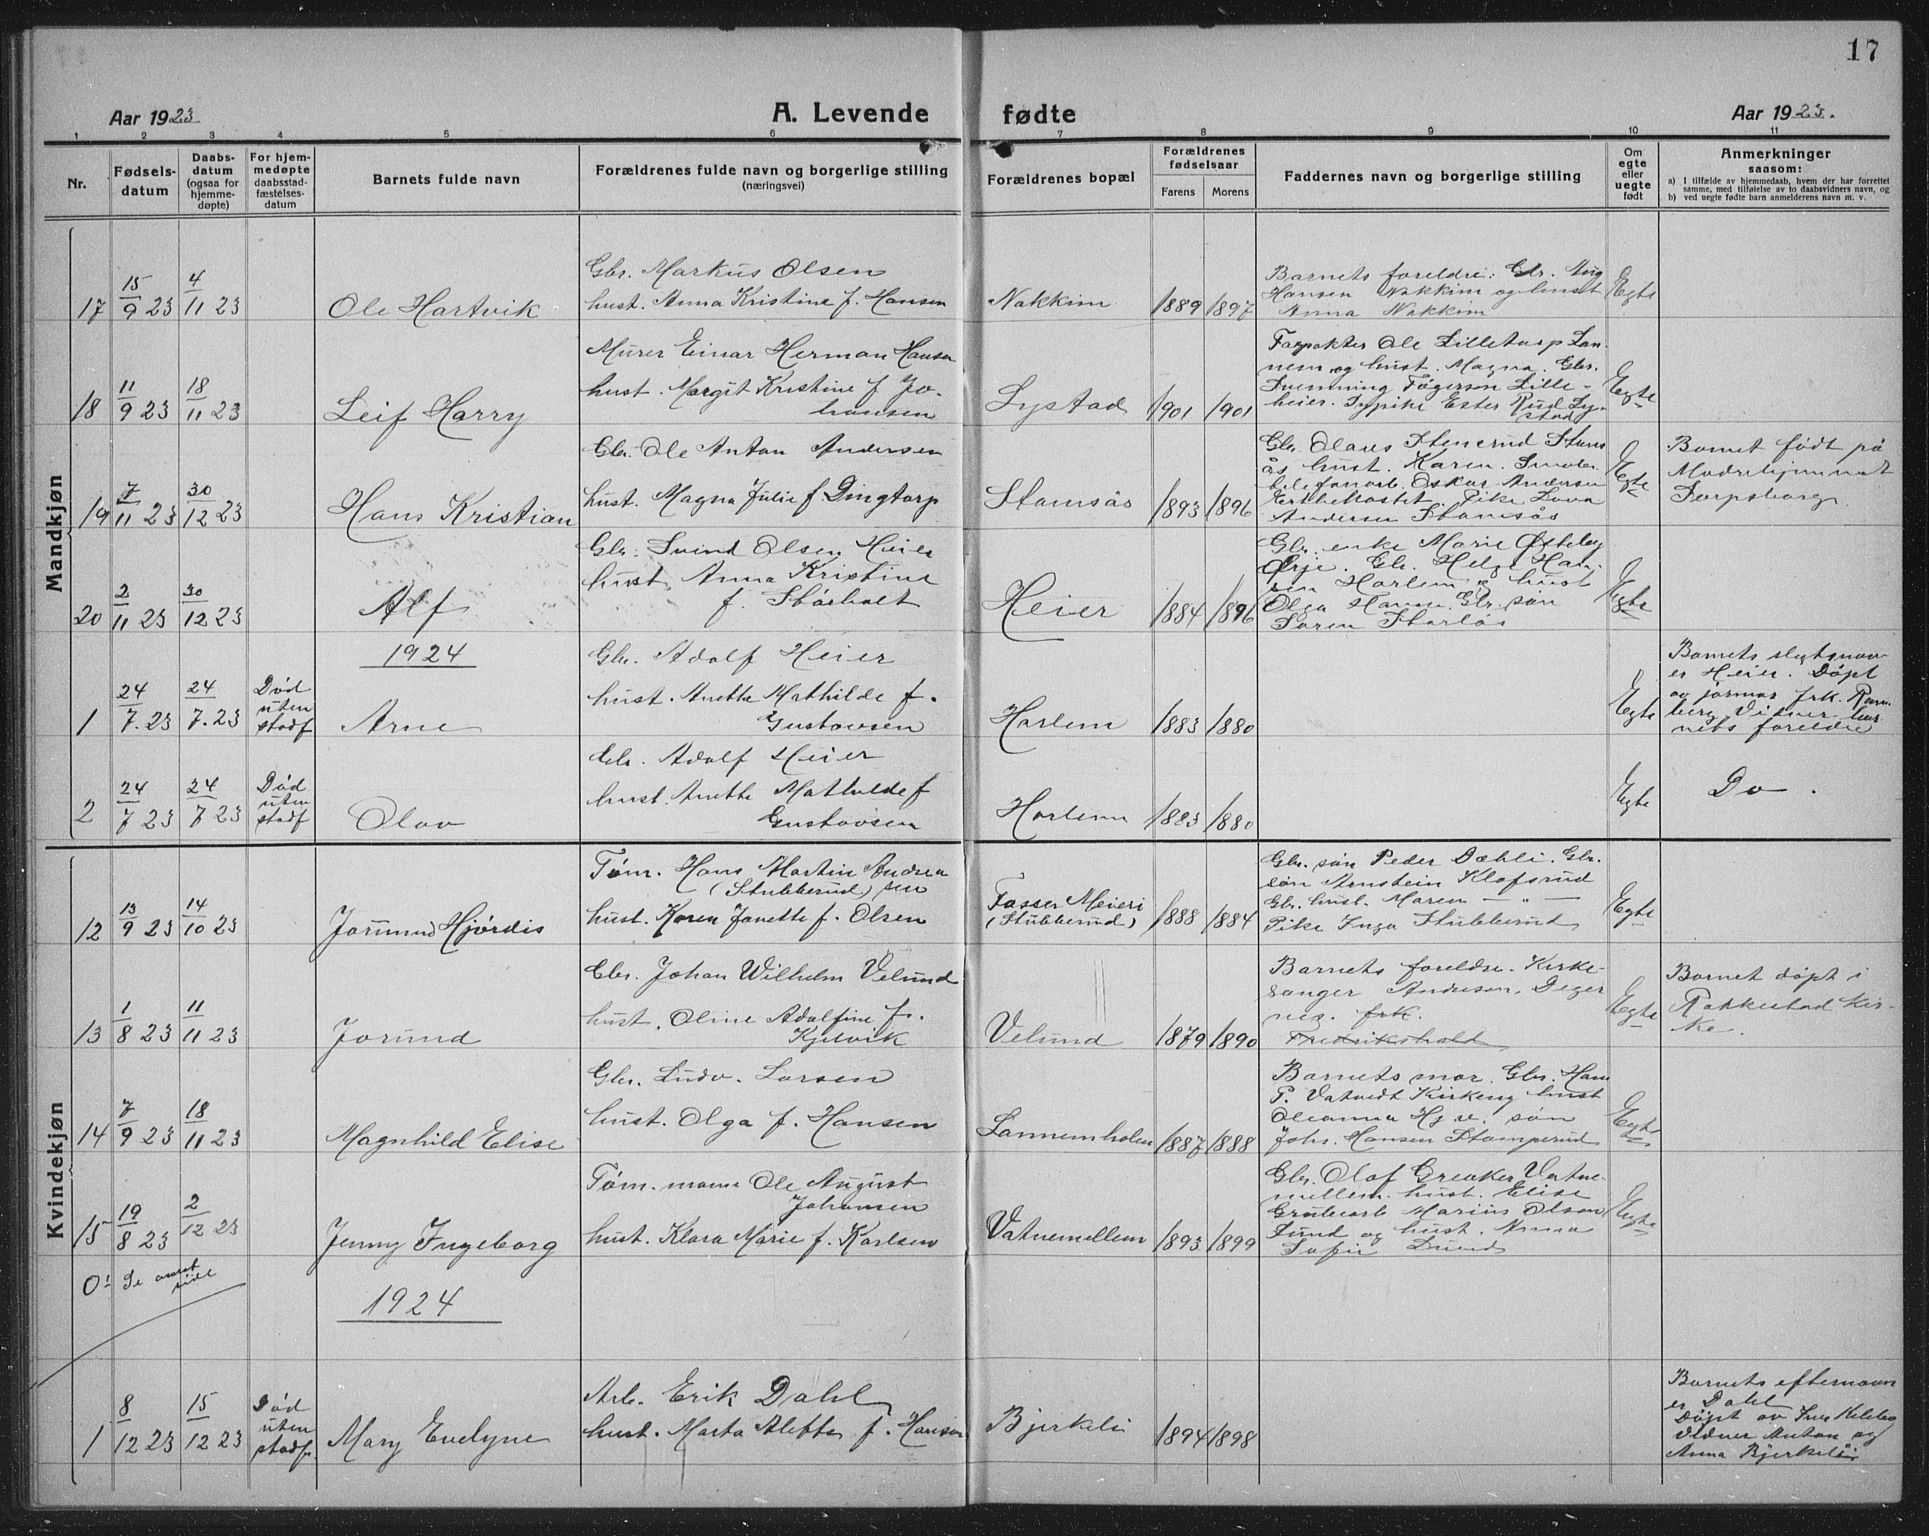 17
Aar 1923
A. Levende fødte
Aar 1923.
1 2 3 4 5 6 7 8 9 10 11
Nr.
Fødsels-
datum
Daabs-
datum
(ogsaa for
hjemme-
døpte)
For hjem-
medøpte
daabsstad-
fæstelses-
datum
Barnets fulde navn
Forældrenes fulde navn og borgerlige stilling
(næringsvei)
Forældrenes bopæl
Forældrenes
fødselsaar
Farens Morens
Faddernes navn og borgerlige stilling
Om
egte
eller
uegte
født
Anmerkninger
saasom:
a) I tilfælde av hjemmedaab, hvem der har forrettet
samme, med tilføielse av to daabsvidners navn, og
b) ved uegte fødte barn anmelderens navn m. v.
Mandkjøn
17 15/9 23 4/11 23
Ole Hartvik
Gbr. Markus Olsen
hust. Anna Kristine f. Hansen
Nakkim 1889 1897
Barnets foreldre. Gbr. Aug
Hansen Nakkim og hust
Anna Nakkim
Egte
18 11/9 23 18/11 23
Leif Harry
Murer Einar Herman Hansen
hust. Margit Kristine f Jo-
hansen
Lystad 1901 1901
Forpakter Ole Lilletorp Lan-
nem og hust. Magna. Gbr.
Flemming Fögersen Lille-
heier. Pike Ester Rud Ly-
stad
Egte
19 7/11 23 30/12 23
Hans Kristian
Gbr. Ole Anton Andersen
hust. Magna Julie f Dingtorp
Stamsås 1893 1896
Gbr. Olaus Stenerud Stams
ås hust. Karen.
Oskar Andersen
Pike Lova
Andersen Stamsås
Egte
Barnet født på
Mødrehjemmet
Sarpsborg
20 2/11 23 30/12 23
Alf
Gbr. Svend Olsen Heier
hust Anna Kristine
f. Storholt
Heier 1884 1896
Gbr. enke Marie Østeby
Ørje. Gbr. Helge Han-
sen Harlem og hust
Olga Gbr. søn
Søren
Egte
1924
1 24/7. 23 24/7. 23 Død
uten
stadf
Arne
Gbr. Adolf Heier
hust. Anette Mathilde f.
Gustavsen
Harlem 1883 1880
Egte
Barnets slegtsnavn
er Heier. Døpt
av jormor frk. Ram-
berg Vidner bar-
nets foreldre
2 24/7 23 24/7 23 Død
uten
stadf
Olav
Gbr. Adolf Heier
hust. Anette Mathilde f
Gustavsen
Harlem 1883 1880
Egte
Do.
Kvindekjøn
12 13/9 23 14/10 23
Jorund Hjørdis
Tøm. Hans Martin Andrea
(Stubberud) sen
hust. Karen Janette f. Olsen
Fosser Meieri
(Stubberud) 1888 1884
Gbr. søn Peder Dæhli. Gbr.
søn Arnstein Klofsrud
Gbr. hust. Maren — " —
Pike Inga Stubberud
Egte
13 1/8 23 11/11 23
Jorund
Gbr. Johan Wilhelm Velund
hust. Oline Adolfine f.
Kjelvik
Velund 1879 1890
Barnets foreldre. Kirke-
sanger Andresen. Deger
nes. frk.
Fredrikshald
Egte
Barnet døpt i
Rakkestad kir-
ke.
14 7/9 23 18/11 23
Magnhild Elise
Gbr. Ludv. Larsen
hust. Olga f. Hansen
Lannemholen 1887 1888
Barnets mor. Gbr. Hans
P. Vatvedt Kirkeng hust
Oleanna Hg. v. søn
Johs. Hansen Stamperud
Egte
15 19/8 23 2/12 23
Jenny Ingeborg
Tøm. mann Ole August
Johansen
hust. Klara Marie f. Karlsen
Vatnemellem 1893 1899
Gbr. Olaf Greaker Vatne-
mellem. hust. Elise
Grubearb Marius Olsen
Lund og hust. Anna
Sofie Lund
Egte
0! Se annet
side
1924
1 8/12 23 15/12 23 Død
uten
stadf.
Mary Evelyne
Arb. Erik Dahl
hust. Marta Alette f. Hansen
Bjerkeli 1894 1898
Barnets efternavn
er Dahl
Døpt av
Vidner Anton og
Anna Bjerkeli